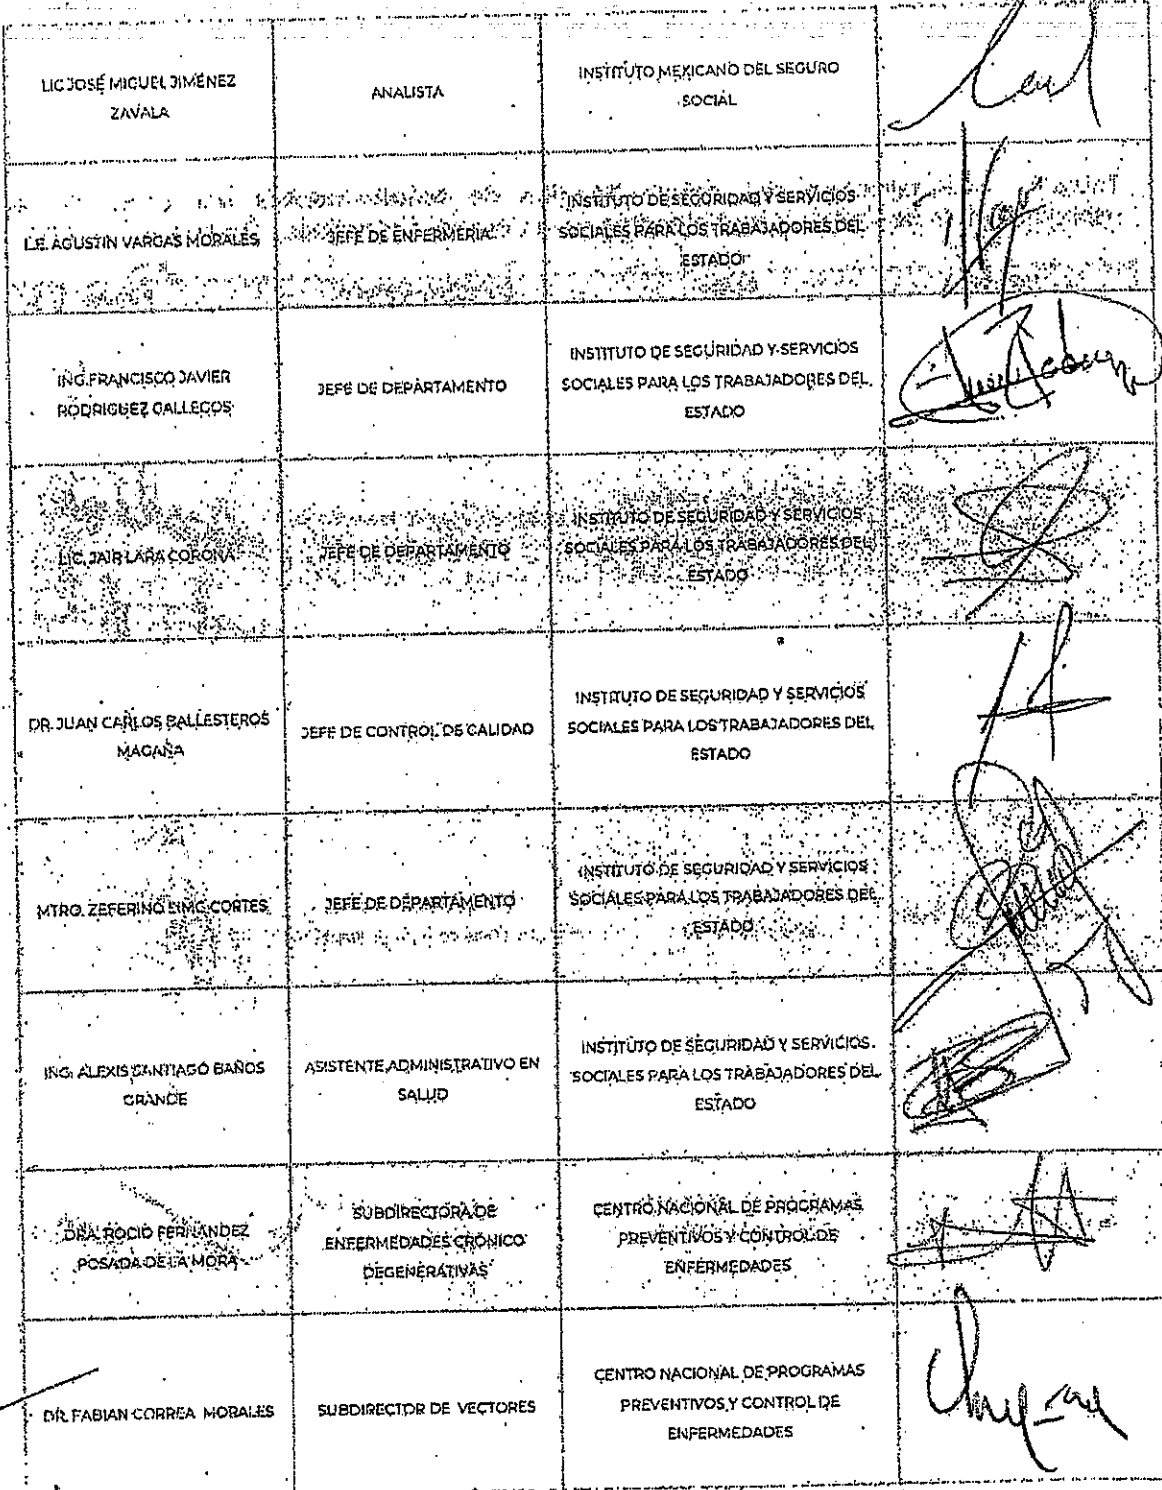 LIC JOSÉ MIGUEL JIMÉNEZ
ZAVALA
ANALISTA
INSTITUTO MEXICANO DEL SEGURO
SOCIAL
L.E. AGUSTIN VARGAS MORALES
JEFE DE ENFERMERIA
INSTITUTO DE SEGURIDAD Y SERVICIOS
SOCIALES PARA LOS TRABAJADORES DEL
ESTADO
ING. FRANCISCO JAVIER
RODRIGUEZ GALLEGOS
JEFE DE DEPARTAMENTO
INSTITUTO DE SEGURIDAD Y SERVICIOS
SOCIALES PARA LOS TRABAJADORES DEL
ESTADO
LIC. JAIR LARA CORONA
JEFE DE DEPARTAMENTO
INSTITUTO DE SEGURIDAD Y SERVICIOS
SOCIALES PARA LOS TRABAJADORES DEL
ESTADO
DR. JUAN CARLOS BALLESTEROS
MAGAÑA
JEFE DE CONTROL DE CALIDAD
INSTITUTO DE SEGURIDAD Y SERVICIOS
SOCIALES PARA LOS TRABAJADORES DEL
ESTADO
MTRO. ZEFERINO CORTES
JEFE DE DEPARTAMENTO
INSTITUTO DE SEGURIDAD Y SERVICIOS
SOCIALES PARA LOS TRABAJADORES DEL
ESTADO
ING. ALEXIS SANTIAGO BAÑOS
GRANDE
ASISTENTE ADMINISTRATIVO EN
SALUD
INSTITUTO DE SEGURIDAD Y SERVICIOS
SOCIALES PARA LOS TRABAJADORES DEL
ESTADO
DRA. ROCIO FERNANDEZ
POSADA DE LA MORA
SUBDIRECTORA DE
ENFERMEDADES CRÓNICO
DEGENERATIVAS
CENTRO NACIONAL DE PROGRAMAS
PREVENTIVOS Y CONTROL DE
ENFERMEDADES
DR. FABIAN CORREA MORALES
SUBDIRECTOR DE VECTORES
CENTRO NACIONAL DE PROGRAMAS
PREVENTIVOS Y CONTROL DE
ENFERMEDADES